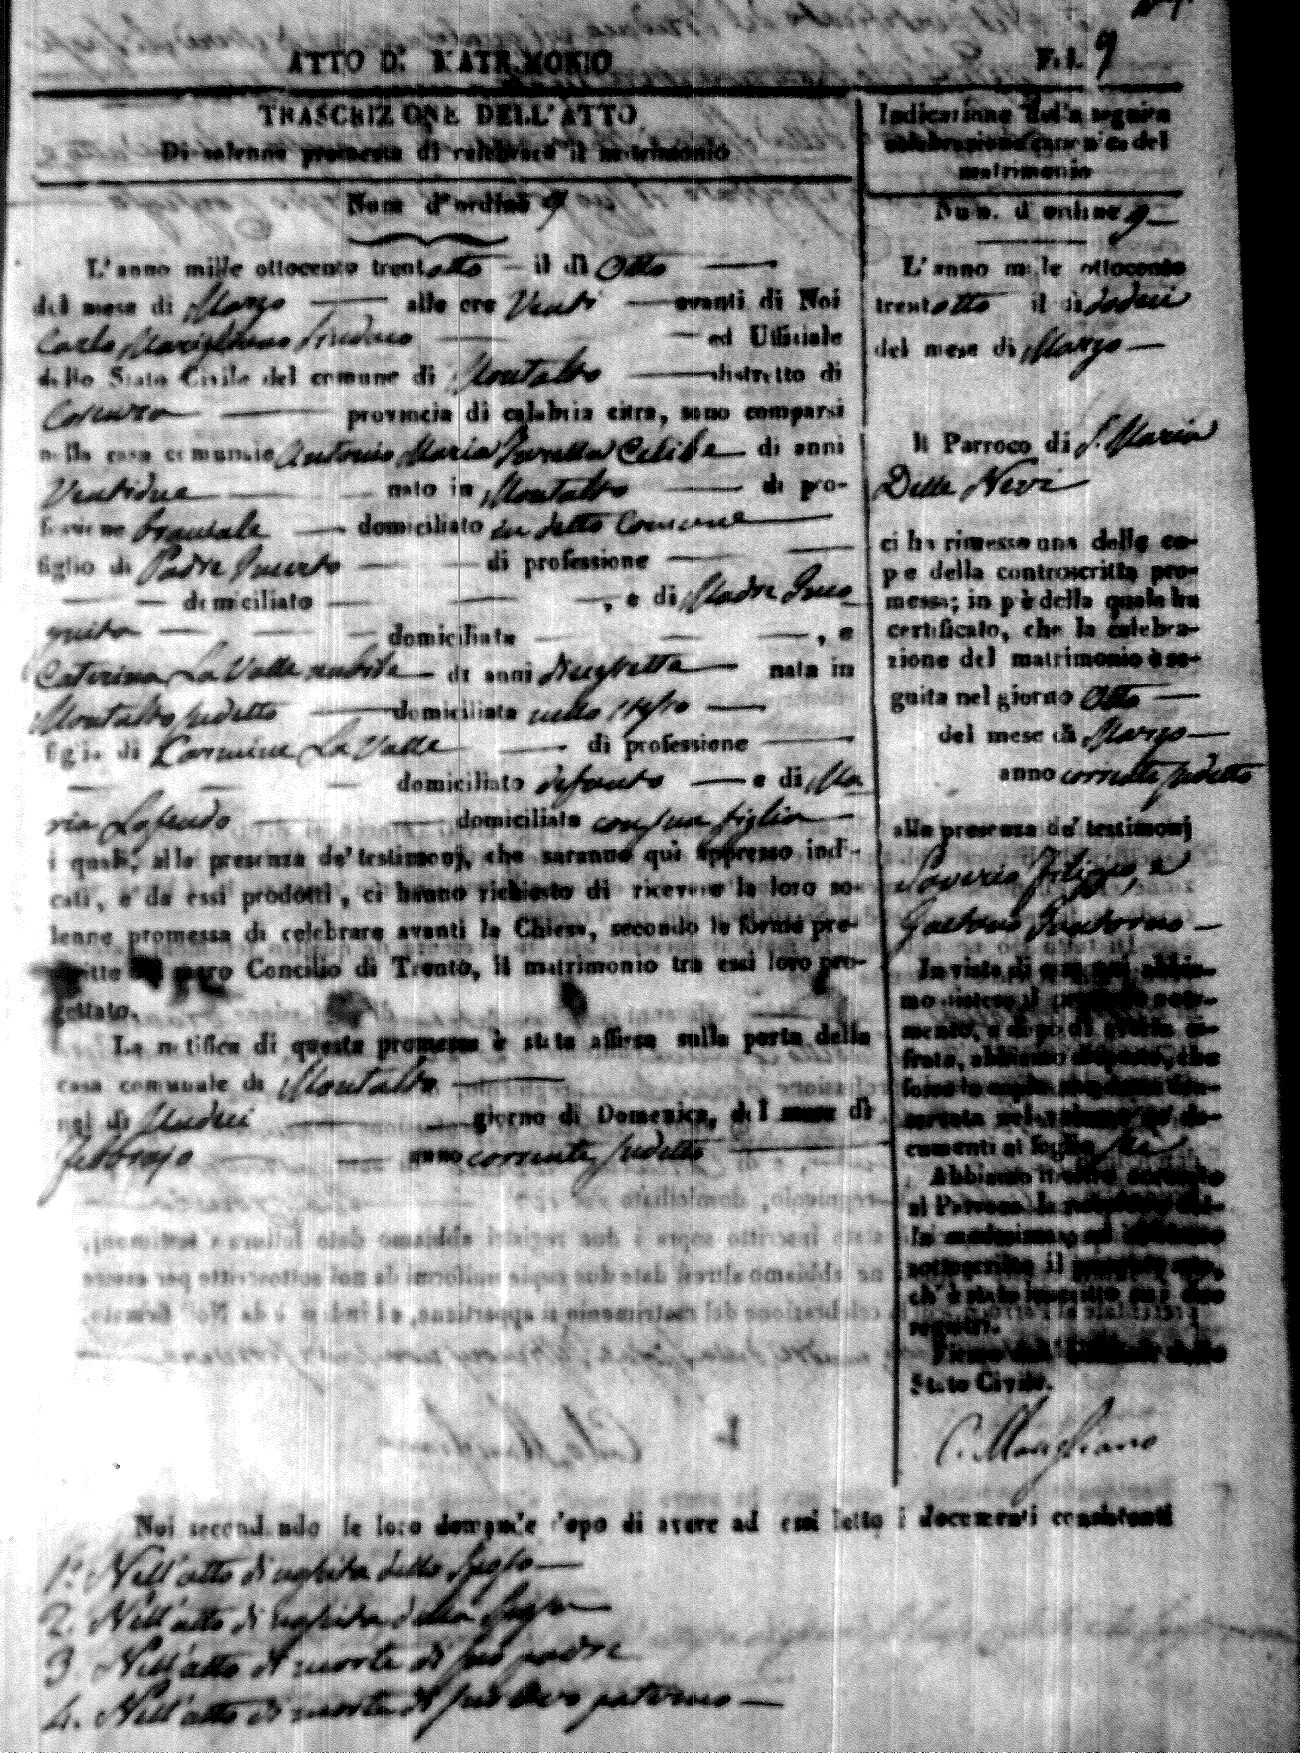 ATTO DI MATRIMONIO
Fol. 9
TRASCRIZIONE DELL'ATTO
Di solenne promessa di celebrare il matrimonio
Num d'ordine 9
L'anno mille ottocento trentotto il dì Otto
del mese di Marzo alle ore Venti avanti di Noi
Carlo Marigliano Sindaco ed Uffiziale
dello Stato Civile del comune di Montalto distretto di
Cosenza provincia di calabria citra, sono comparsi
nella casa comunale Antonio Maria Celibe di anni
Ventidue nato in Montalto di pro-
fessione bracciale domiciliato in detto Comune
figlio di Padre Incerto di professione
domiciliato , e di Madre Inco
gnita domiciliata , e
Caterina La Valle nubile di anni diciassette nata in
Montalto predetto domiciliata nello stesso
figlia di Carmine La Valle di professione
domiciliato defunto e di Ma
ria domiciliata con sua figlia
i quali, alla presenza de' testimonj, che saranno quì appresso indi-
cati, e da essi prodotti, ci hanno richiesto di ricevere la loro so-
lenne promessa di celebrare avanti la Chiesa, secondo le forme pre-
scritte dal sacro Concilio di Trento, il matrimonio tra essi loro pro-
gettato.
La notifica di questa promessa è stata affissa sulla porta della
casa comunale di Montalto
nel dì Undici giorno di Domenica, del mese di
Febbrajo anno corrente predetto
Indicazione della seguita
celebrazione canonica del
matrimonio
Num. d'ordine 9
L'anno mille ottocento
trentotto il dì dodici
del mese di Marzo
Il Parroco di S. Maria
Della Neve
ci ha rimesso una delle co-
pie della controscritta pro-
messa; in piè della quale ha
certificato, che la celebra-
zione del matrimonio è se-
guita nel giorno Otto
del mese di Marzo
anno corrente predetto
alla presenza de' testimonj
Saverio Filippo, e
Gaetano
In vista di essa noi abbia-
mo disteso il presente noto-
mento, e dopo di averla ci-
frata, abbiamo disposto, che
fosse la copia anzidetta con-
servata nel volume de' do-
cumenti al foglio
Abbiamo inoltre accusato
al Parroco la ricezione del-
la medesima, ed abbiamo
sottoscritto il presente atto,
ch' è stato inscritto sui due
registri.
Firma dell' Uffiziale dello
Stato Civile.
C. Marigliano
Noi secondando le loro domande dopo di avere ad essi letto i documenti consistenti
1. Nell'atto di nascita dello Sposo
2. Nell'atto di nascita della Sposa
3. Nell'atto di morte di suo padre
4. Nell'atto di morte di suo Avo paterno